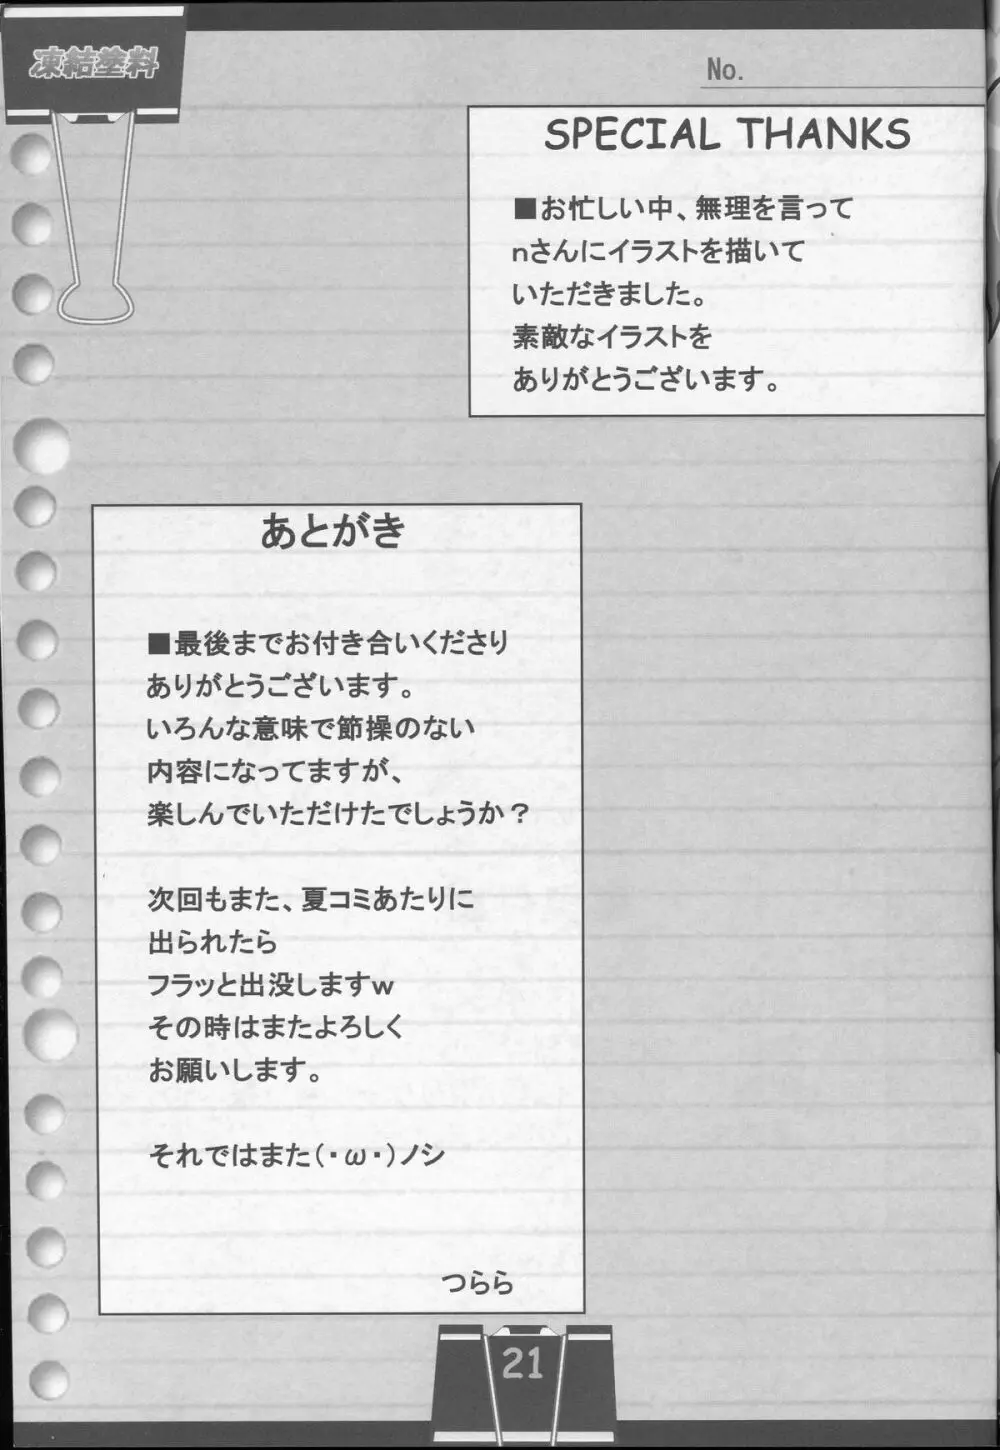 凍結塗料
No.
SPECIAL THANKS
■お忙しい中、無理を言って
nさんにイラストを描いて
いただきました。
素敵なイラストを
ありがとうございます。
あとがき
■最後までお付き合いくださり
ありがとうございます。
いろんな意味で節操のない
内容になってますが、
楽しんでいただけたでしょうか？
次回もまた、夏コミあたりに
出られたら
フラッと出没しますｗ
その時はまたよろしく
お願いします。
それではまた(・ω・)ノシ
つらら
21